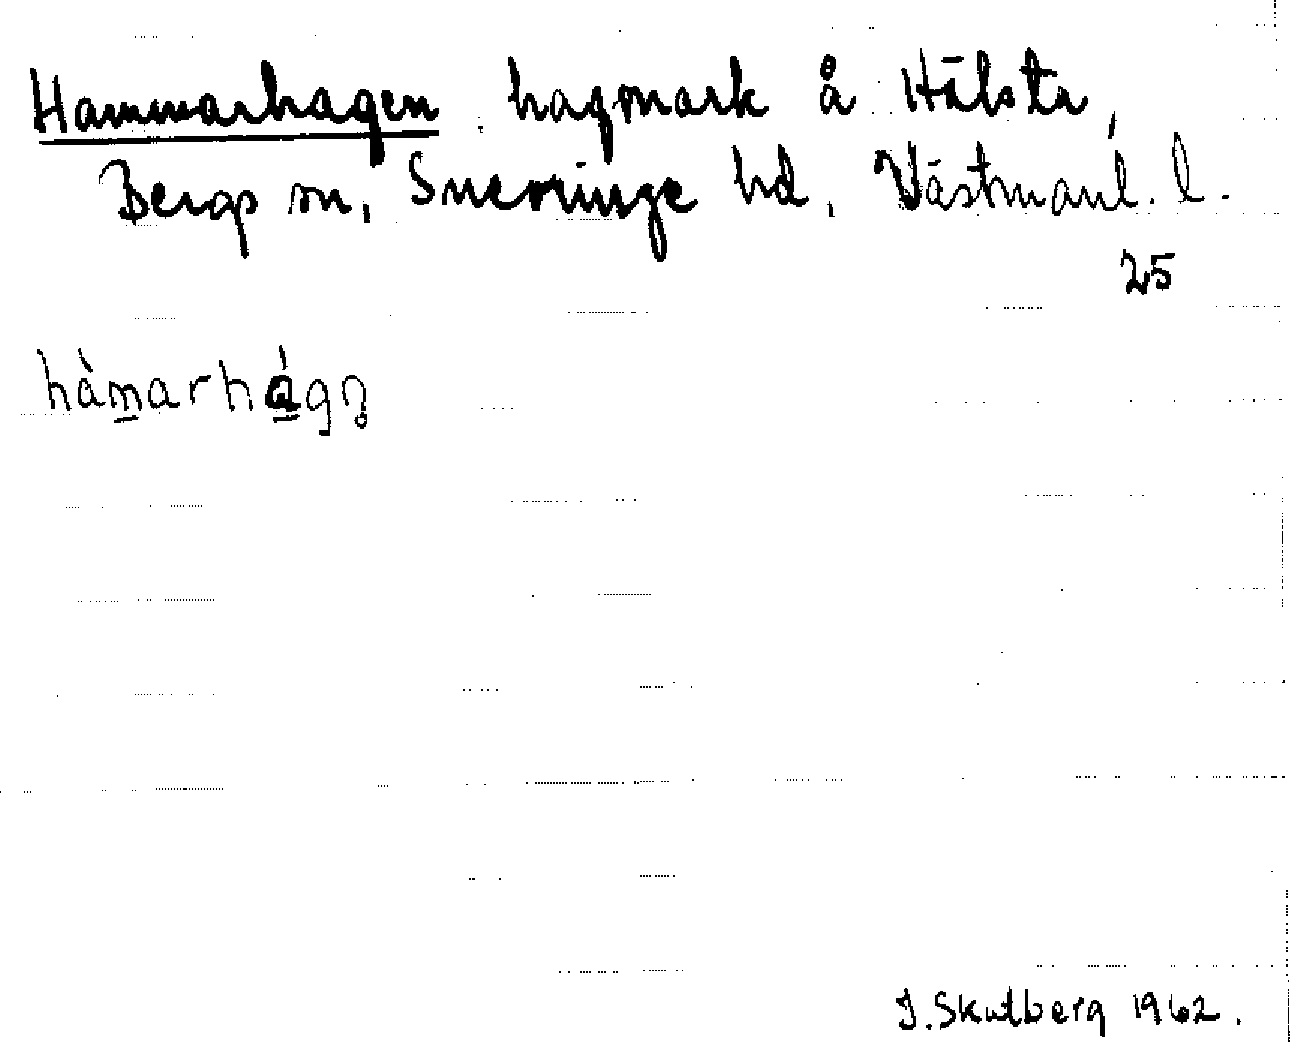 Hammarhagen, hagmark å Hälsta,
Bergs sn, Snevringe hd, Västmanl. l.
25
hàm̲arhá̲gn̥
J. Skutberg 1962.